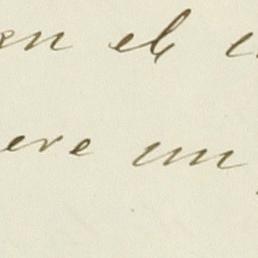 en el
ere un